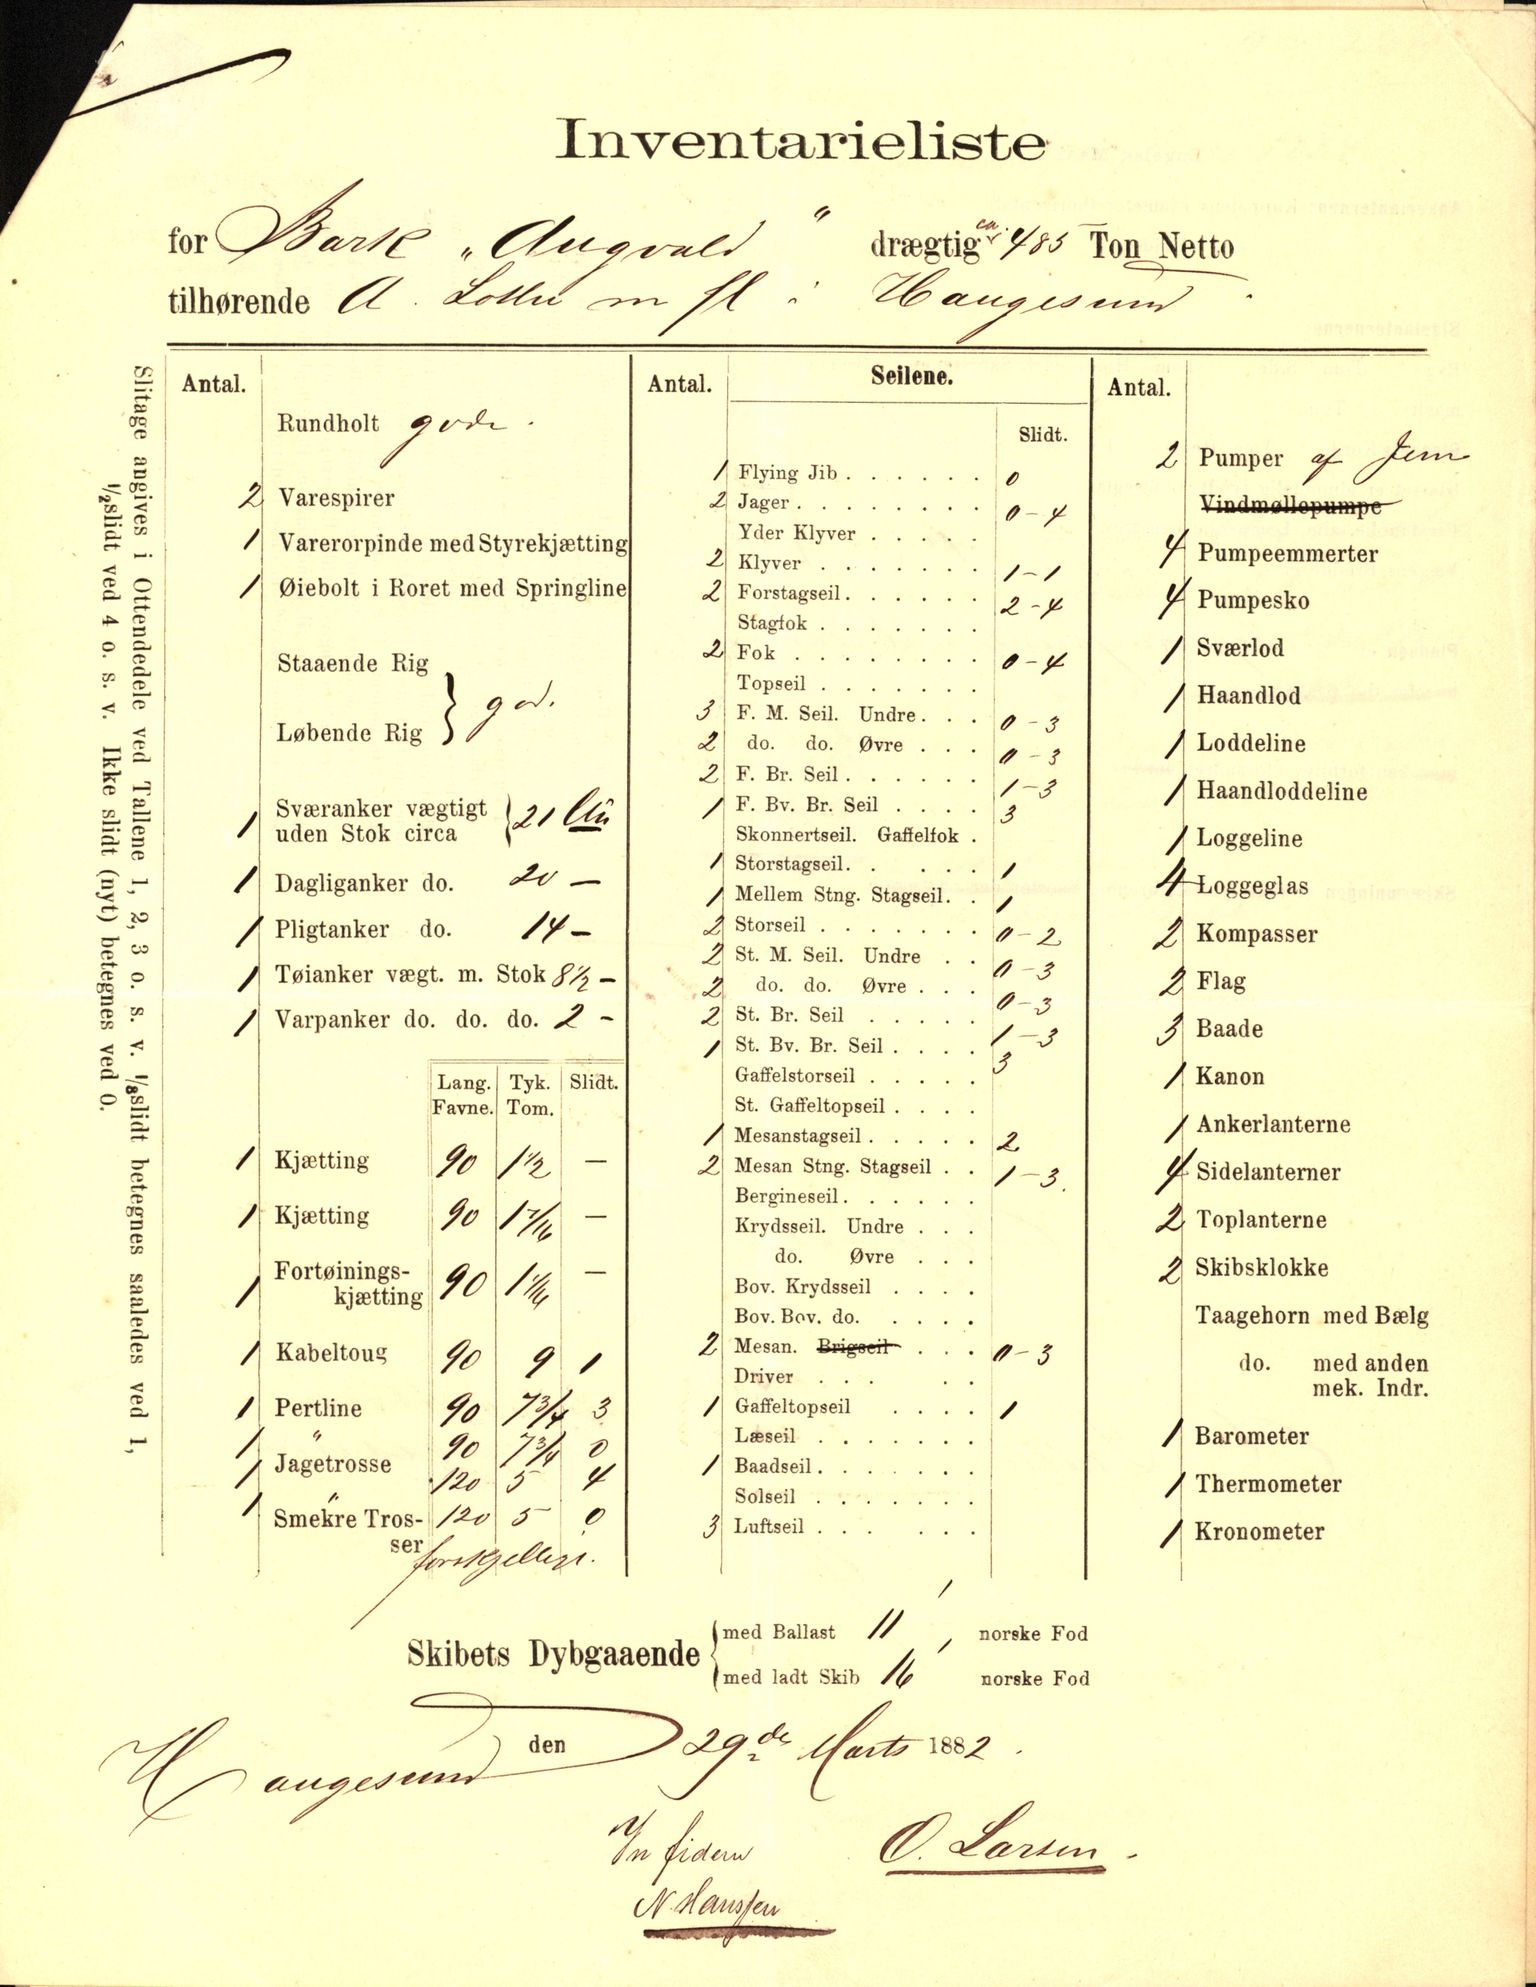 Inventarieliste
for Bark „Augvald“ drægtig ca. 485 Ton Netto
tilhørende A. m fl i Haugesund.
Slitage angives i Ottendedele ved Tallene 1, 2, 3 o. s. v. ⅛slidt betegnes saaledes ved 1,
½slidt ved 4 o. s. v. Ikke slidt (nyt) betegnes ved 0.
Antal.
Rundholt gode.
2 Varespirer
1 Varerorpinde med Styrekjætting
1 Øiebolt i Roret med Springline
Staaende Rig
Løbende Rig } god.
1 Sværanker vægtigt
uden Stok circa } 21
1 Dagliganker do. 20 —
1 Pligtanker do. 14 —
1 Tøianker vægt. m. Stok 8½ —
1 Varpanker do. do. do. 2 —
Lang. Favne. Tyk. Tom. Slidt.
1 Kjætting 90 1½ —
1 Kjætting 90 1 7/16 —
1 Fortøinings-
kjætting 90 1 1/16 —
1 Kabeltoug 90 9 1
1 Pertline 90 7¾ 3
1 „ 90 7¾ 0
1 Jagetrosse 120 5 4
1 „ 120 5 0
Smekre Tros-
ser forskjellige.
Antal. Seilene. Slidt.
1 Flying Jib 0
2 Jager 0–4
Yder Klyver
2 Klyver 1–1
2 Forstagseil 2–4
Stagfok
2 Fok 0–4
Topseil
3 F. M. Seil. Undre 0–3
2 do. do. Øvre 0–3
2 F. Br. Seil 1–3
1 F. Bv. Br. Seil 3
Skonnertseil. Gaffelfok
1 Storstagseil 1
1 Mellem Stng. Stagseil 1
2 Storseil 0–2
2 St. M. Seil. Undre 0–3
2 do. do. Øvre 0–3
2 St. Br. Seil 1–3
1 St. Bv. Br. Seil 3
Gaffelstorseil
St. Gaffeltopseil
1 Mesanstagseil 2
2 Mesan Stng. Stagseil 1–3.
Bergineseil
Krydsseil. Undre
do. Øvre
Bov. Krydsseil
Bov. Bov. do.
2 Mesan. Brigseil 0–3
Driver
1 Gaffeltopseil 1
Læseil
1 Baadseil
Solseil
3 Luftseil
Antal.
2 Pumper af Jern
Vindmøllepumpe
4 Pumpeemmerter
4 Pumpesko
1 Sværlod
1 Haandlod
1 Loddeline
1 Haandloddeline
1 Loggeline
4 Loggeglas
2 Kompasser
2 Flag
3 Baade
1 Kanon
1 Ankerlanterne
4 Sidelanterner
2 Toplanterne
2 Skibsklokke
Taagehorn med Bælg
do. med anden
mek. Indr.
1 Barometer
1 Thermometer
1 Kronometer
Skibets Dybgaaende { med Ballast 11' norske Fod
med ladt Skib 16' norske Fod
Haugesund den 29de Marts 1882.
In fidem O. Larsen.
N. Hanssen